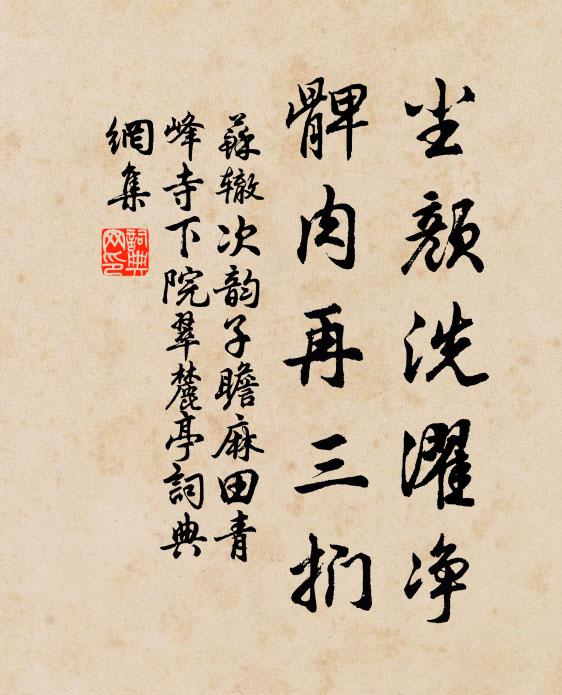 尘颜洗濯净
髀肉再三捫
蘇辙次韵子瞻麻田青
峰寺下院翠麓亭詞典
網集
詞典
网印